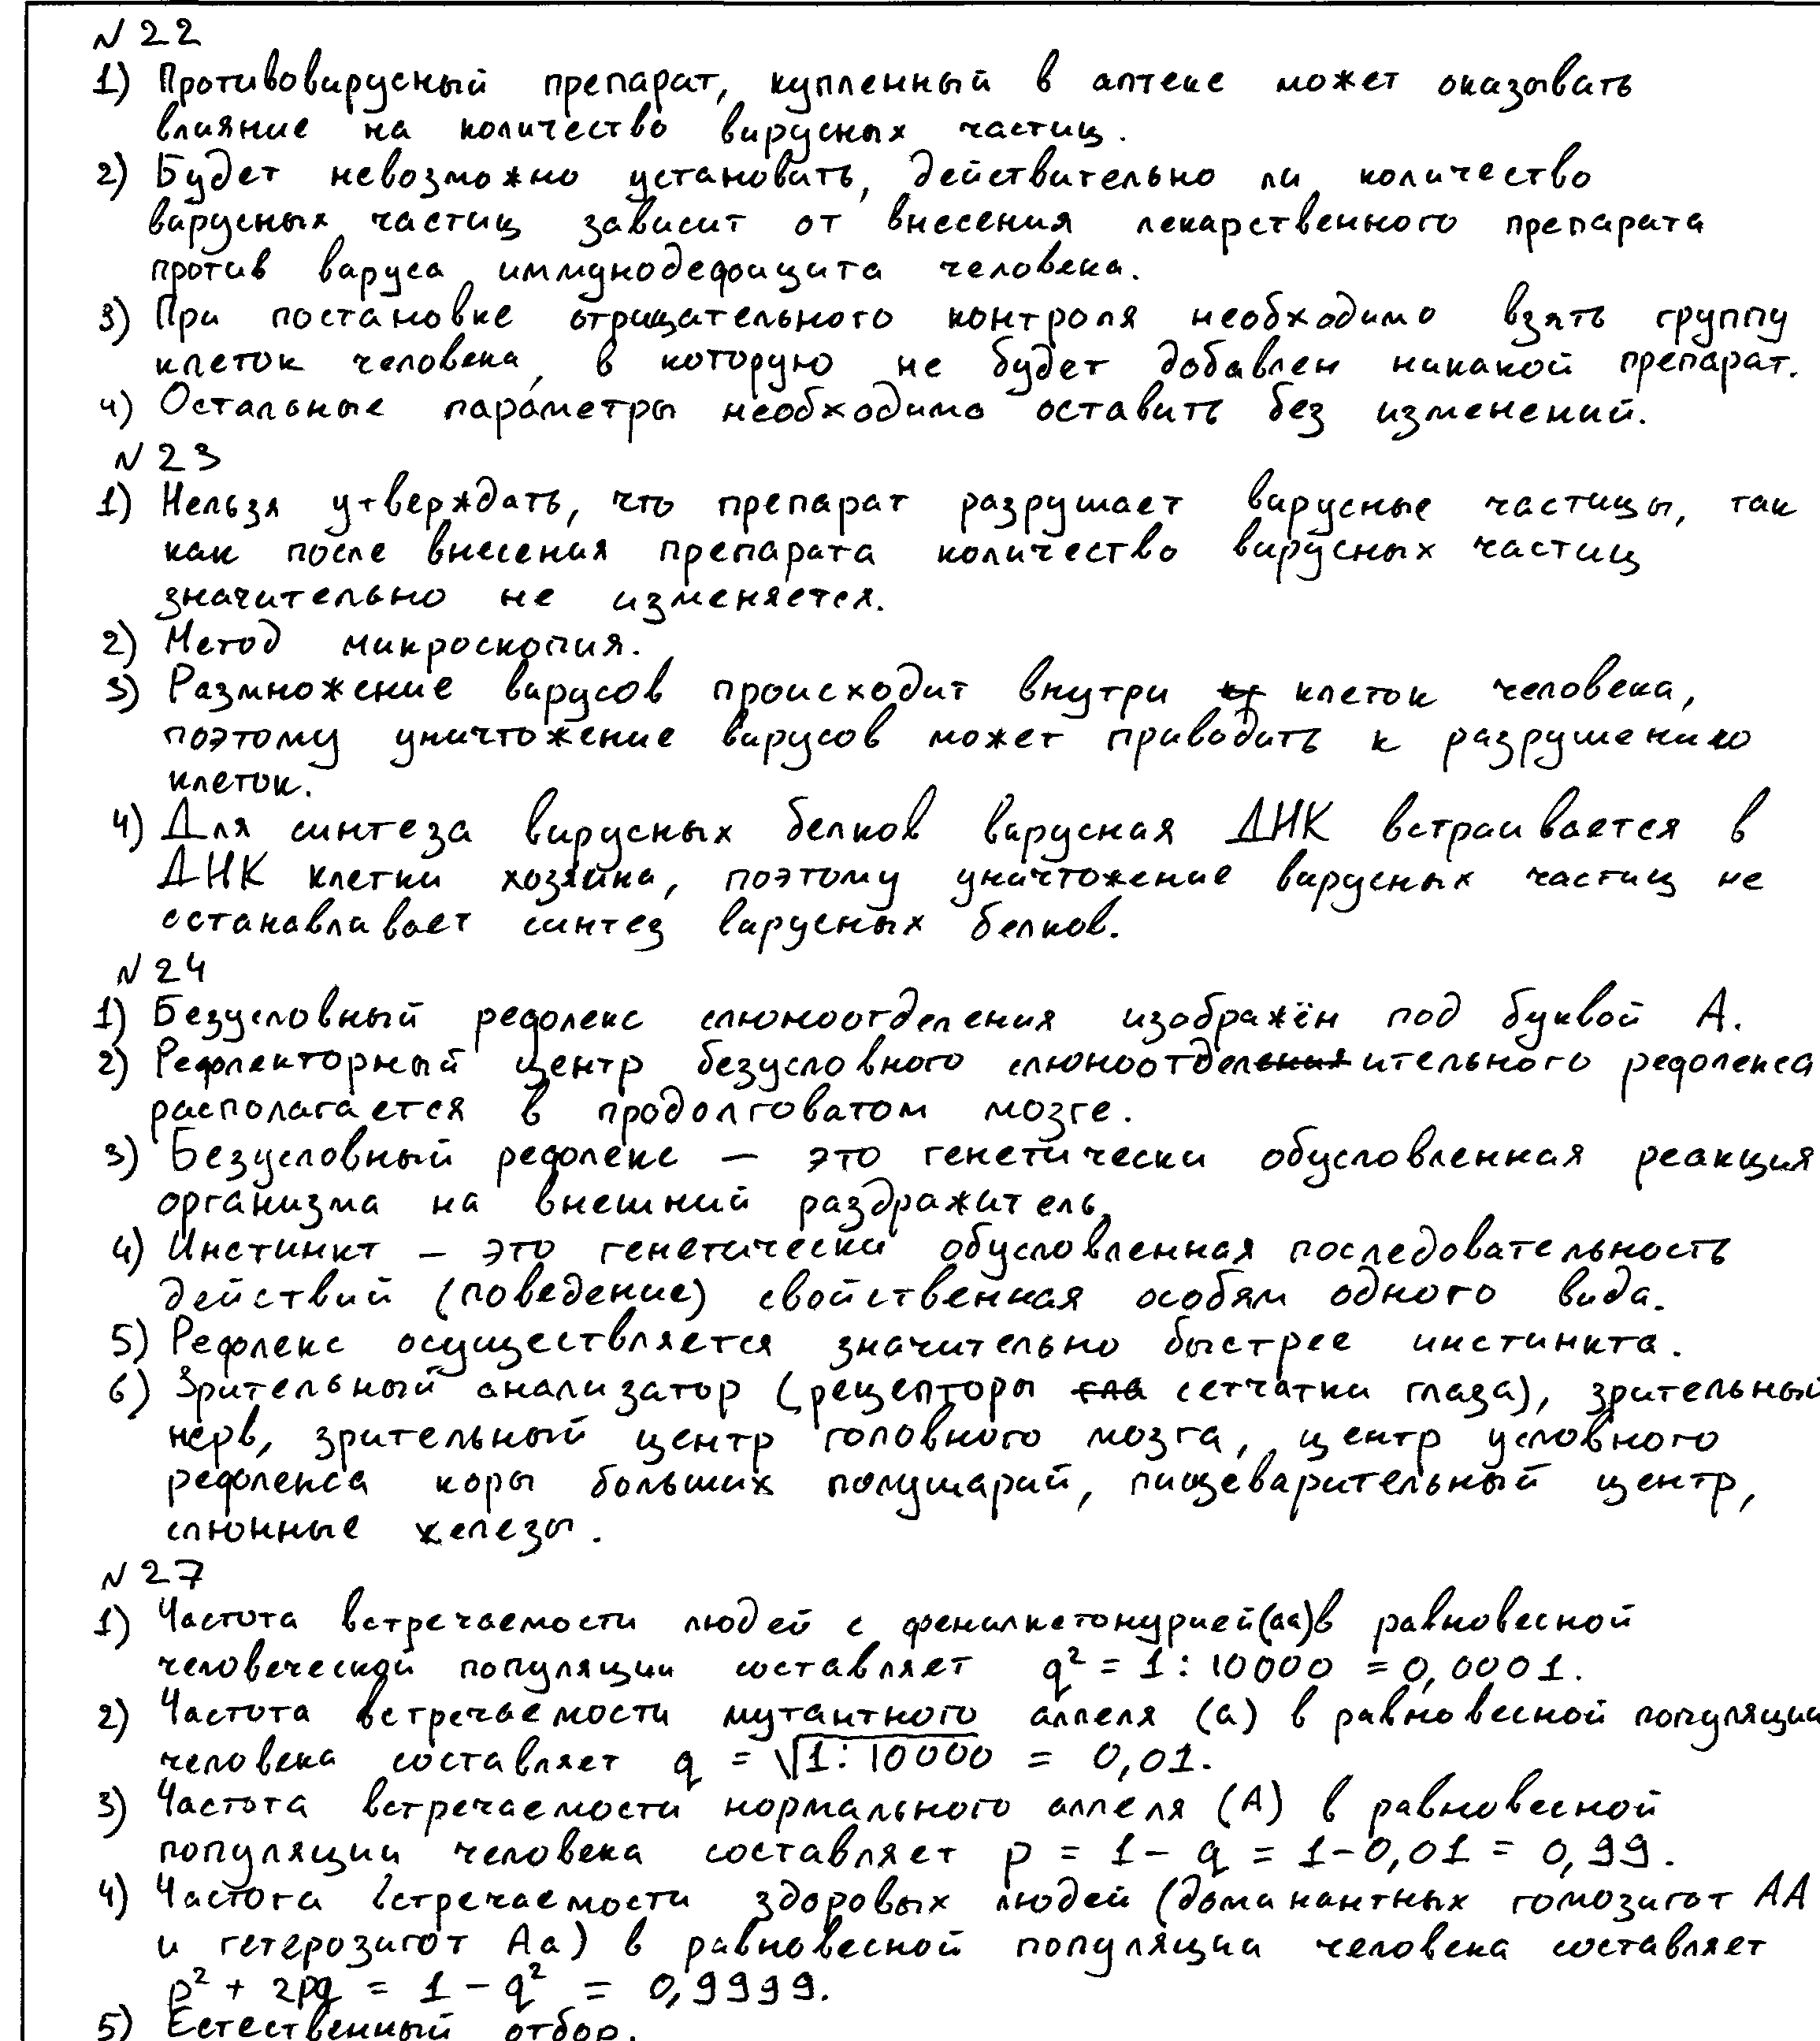 N 22
1) Противовирусный препарат, купленный в аптеке может оказывать
влияние на количество вирусных частиц.
2) Будет невозможно установить, действительно ли количество
вирусных частиц зависит от внесения лекарственного препарата
против вируса иммунодефицита человека.
3) При постановке отрицательного контроля необходимо взять группу
клеток человека, в которую не будет добавлен никакой препарат.
4) Остальные параметры необходимо оставить без изменений.
N 23
1) Нельзя утверждать, что препарат разрушает вирусные частицы, так
как после внесения препарата количество вирусных частиц
значительно не изменяется.
2) Метод микроскопия.
3) Размножение вирусов происходит внутри клеток человека,
поэтому уничтожение вирусов может приводить к разрушению
клеток.
4) Для синтеза вирусных белков вирусная ДНК встраивается в
ДНК клетки хозяина, поэтому уничтожение вирусных частиц не
останавливает синтез вирусных белков.
N 24
1) Безусловный рефлекс слюноотделения изображён под буквой А.
2) Рефлекторный центр безусловного слюноотделительного рефлекса
располагается в продолговатом мозге.
3) Безусловный рефлекс — это генетически обусловленная реакция
организма на внешний раздражитель.
4) Инстинкт – это генетически обусловленная последовательность
действий (поведение) свойственная особям одного вида.
5) Рефлекс осуществляется значительно быстрее инстинкта.
6) Зрительный анализатор (рецепторы сетчатки глаза), зрительный
нерв, зрительный центр головного мозга, центр условного
рефлекса коры больших полушарий, пищеварительный центр,
слюнные железы.
N 27
1) Частота встречаемости людей с фенилкетонурией(аа)в равновесной
человеческой популяции составляет q² = 1 : 10000 = 0,0001.
2) Частота встречаемости мутантного аллеля (а) в равновесной популяции
человека составляет q = √1 : 10000 = 0,01.
3) Частота встречаемости нормального аллеля (А) в равновесной
популяции человека составляет p = 1 - q = 1-0,01 = 0,99.
4) Частота встречаемости здоровых людей (доминантных гомозигот АА
и гетерозигот Аа) в равновесной популяции человека составляет
p² + 2pq = 1 - q² = 0,9999.
5) Естественный отбор.